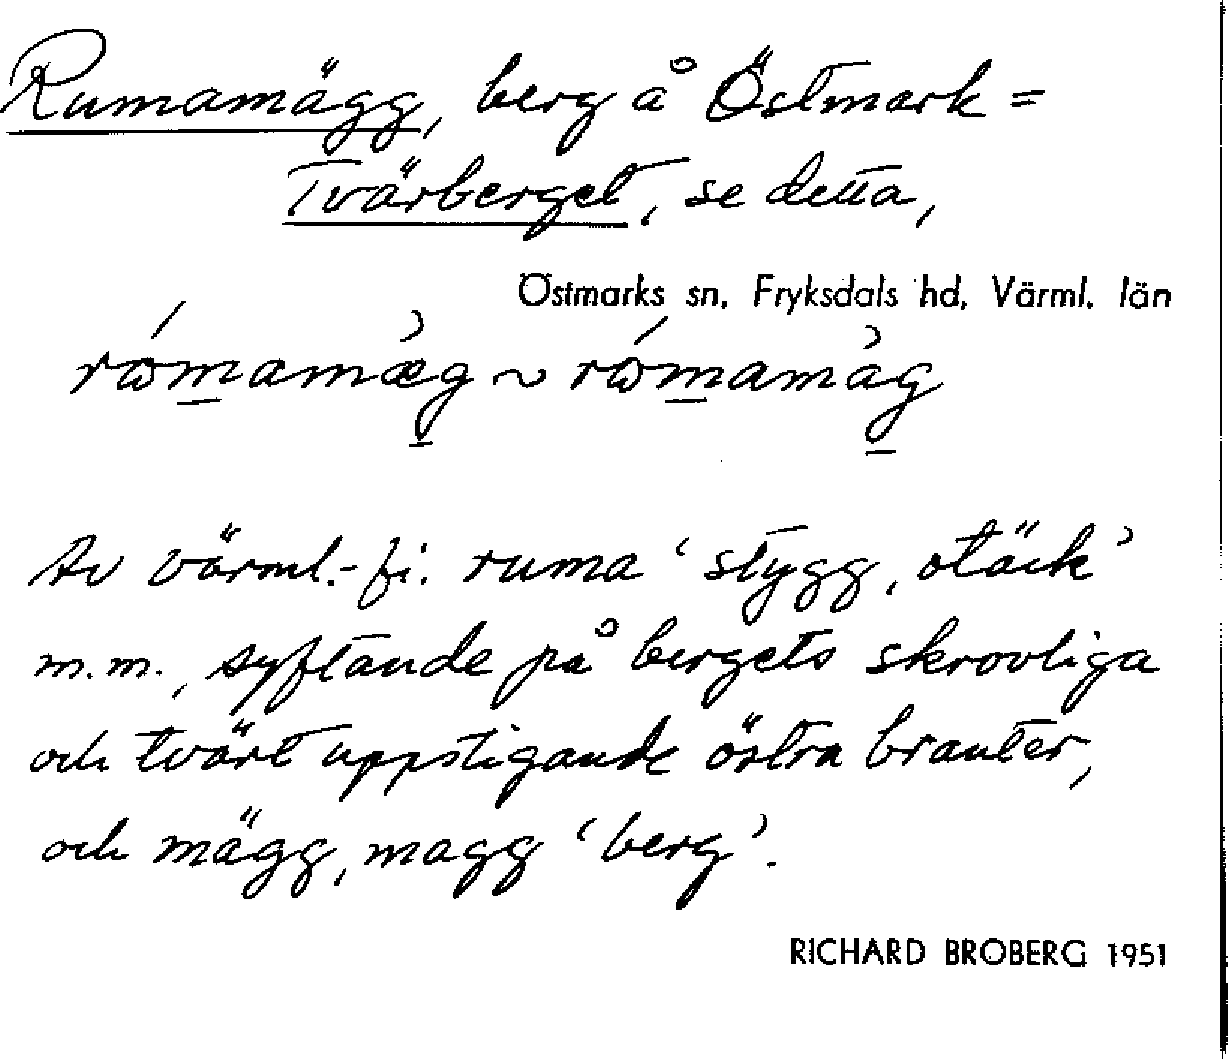 Rumamägg, berg å Östmark =
Tvärberget, se detta,
Östmarks sn, Fryksdals hd, Värml. län
rώm̲amæ̀g̲ ~ rώm̲amàg̲
Av värml.-fi. ruma ‘stygg, otäck’
m.m., syftande på bergets skrovliga
och tvärt uppstigande östra branter,
och mägg, magg ‘berg’.
RICHARD BROBERG 1951